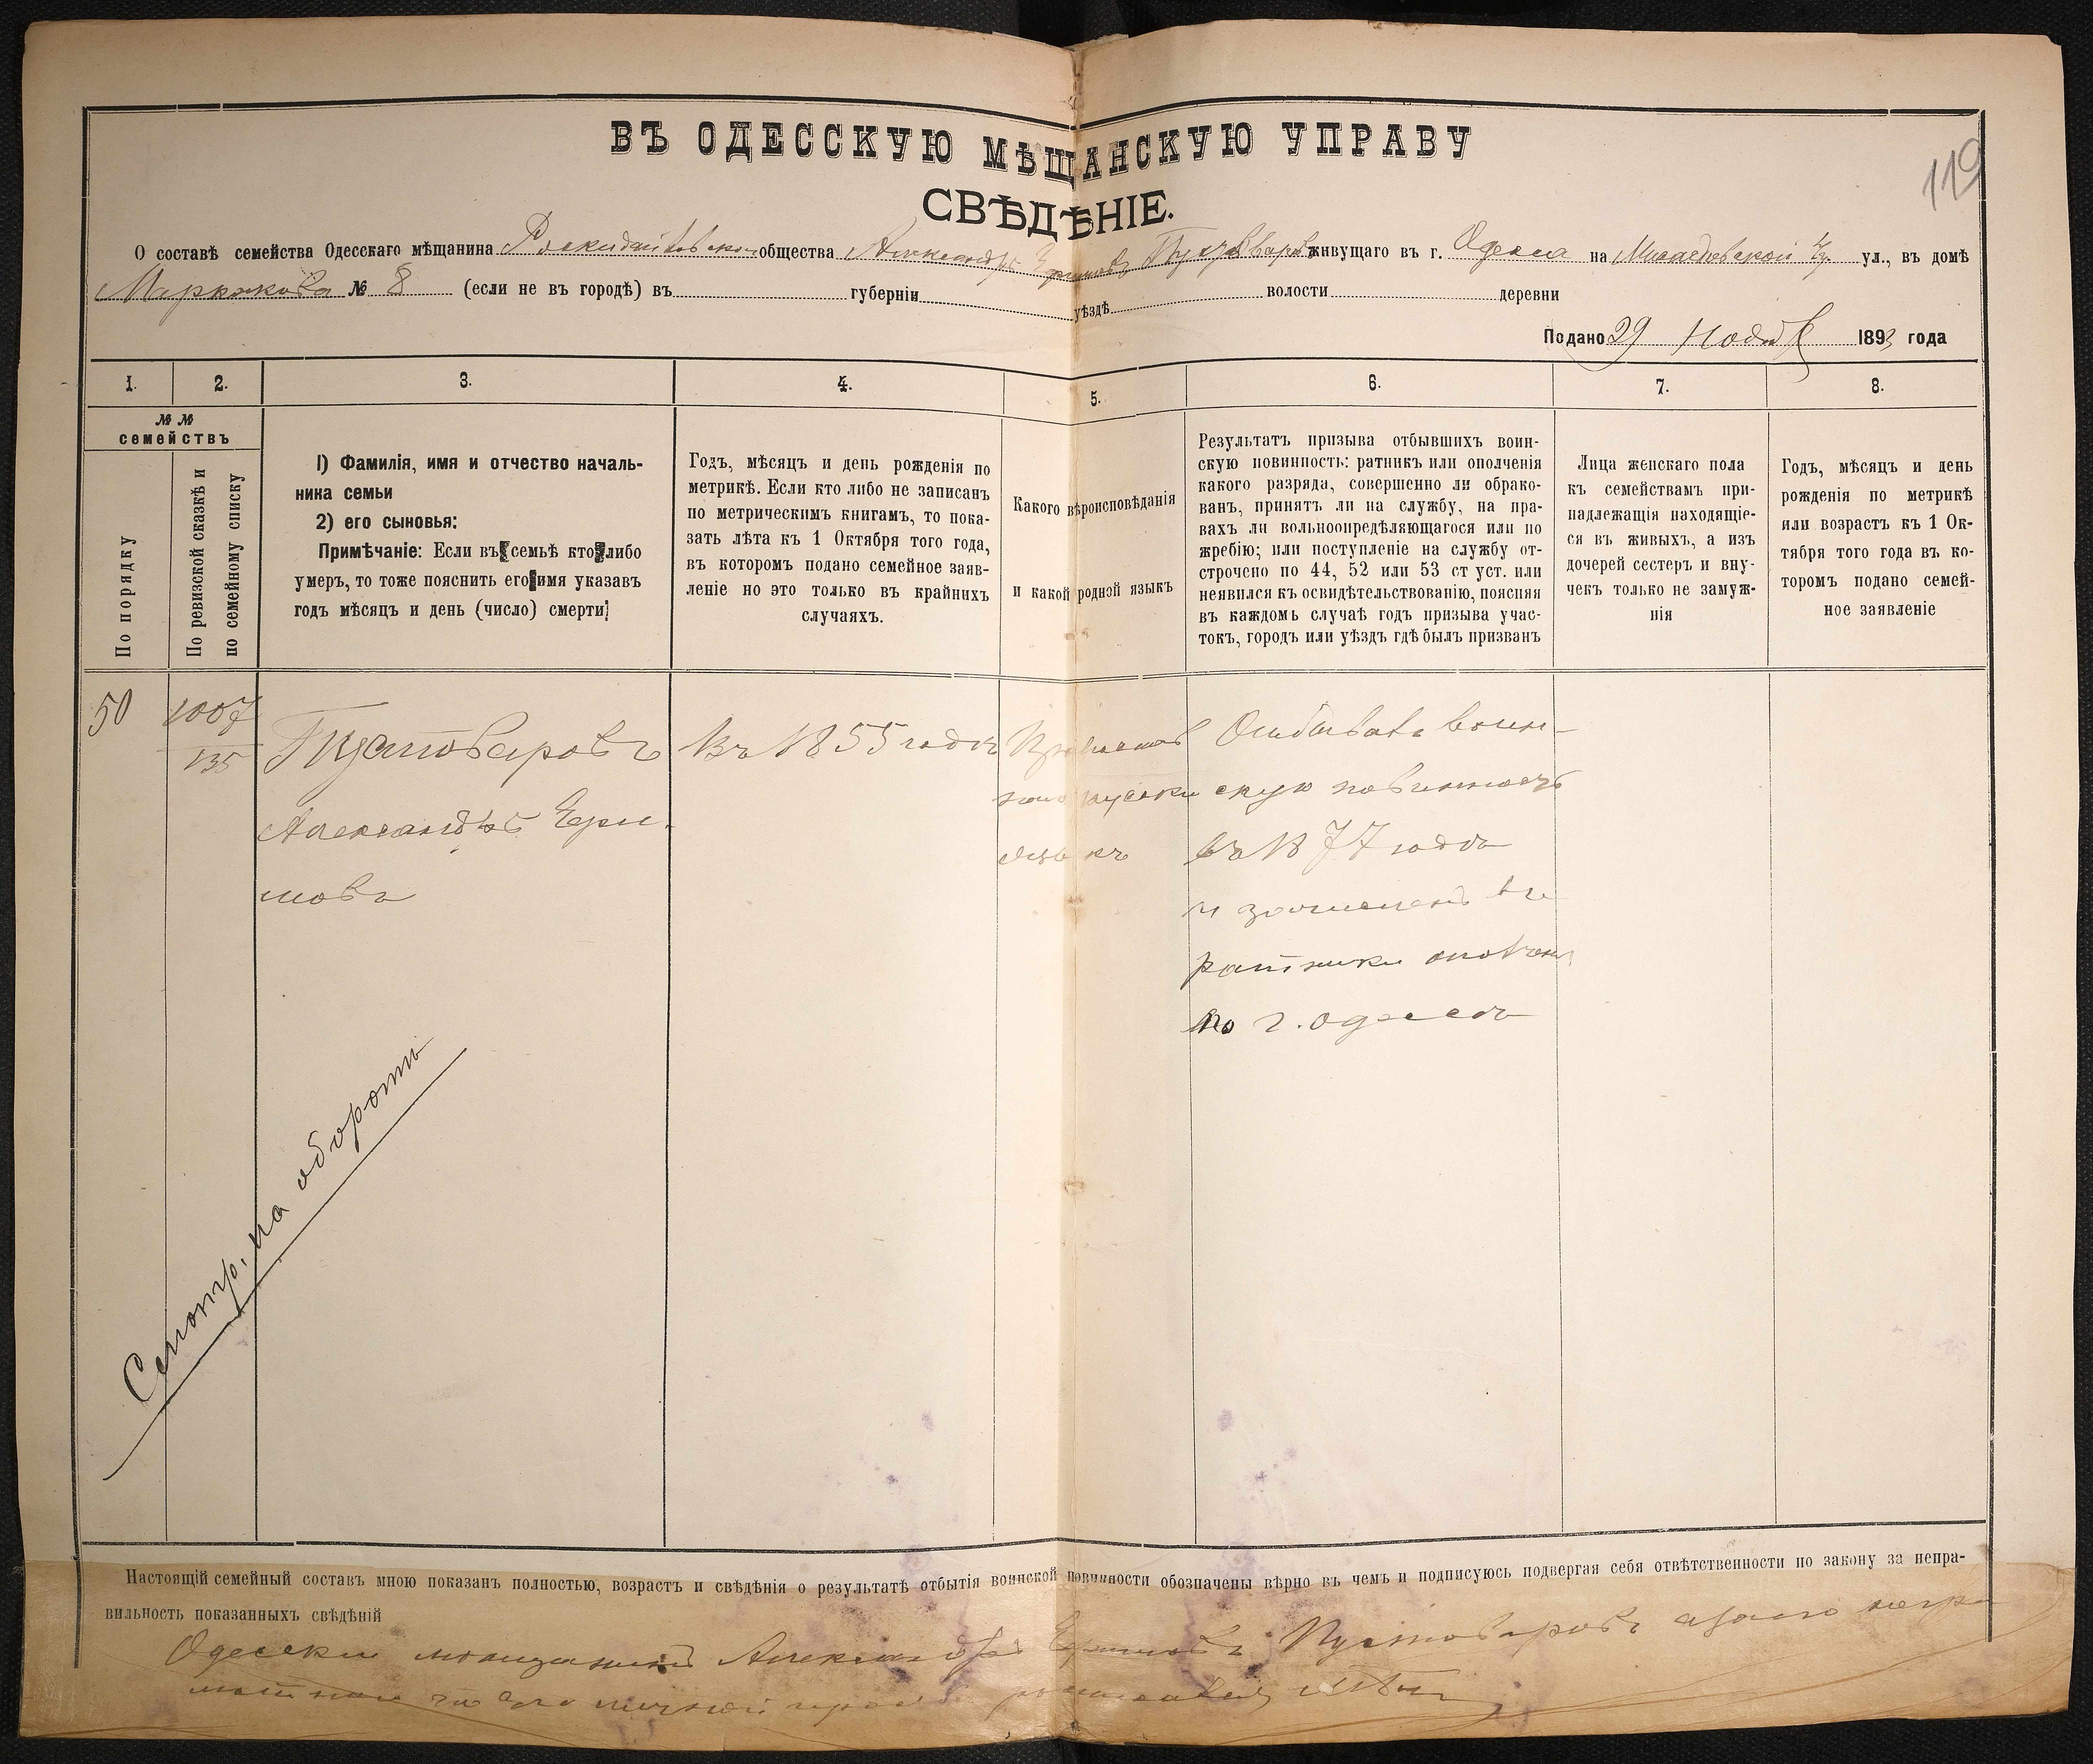 119
ВЪ ОДЕССКУЮ МѢЩАНСКУЮ УПРАВУ
СВѢДѢНІЕ.
О составѣ семейства Одесскаго мѣщанина общества Александръ Ефимовъ Пустоваровъ живущаго въ г. Одесса на ул., въ домѣ
№ 8 (если не въ городѣ) въ губерніи уѣздѣ волости деревни
Подано 29 Ноябр 1893 года
1. 2. 3. 4. 5. 6. 7. 8.
№ №
семействъ
По порядку
По ревизской сказкѣ и
по семейному списку
1) Фамилія, имя и отчество началь-
ника семьи
2) его сыновья:
Примѣчаніе: Если въ семьѣ кто либо
умеръ, то тоже пояснить его имя указавъ
годъ мѣсяцъ и день (число) смерти;
Годъ, мѣсяцъ и день рожденія по
метрикѣ. Если кто либо не записанъ
по метрическимъ книгамъ, то пока-
зать лѣта къ 1 Октября того года,
въ которомъ подано семейное заяв-
леніе но это только въ крайнихъ
случаяхъ.
Какого вѣроисповѣданія
и какой родной языкъ
Результатъ призыва отбывшихъ воин-
скую повинность: ратникъ или ополченія
какого разряда, совершенно ли обрако-
ванъ, принятъ ли на службу, на пра-
вахъ ли вольноопредѣляющагося или по
жребію; или поступленіе на службу от-
строчено по 44, 52 или 53 ст уст. или
неявился къ освидѣтельствованію, поясняя
въ каждомъ случаѣ годъ призыва учас-
токъ, городъ или уѣздъ гдѣ былъ призванъ
Лица женскаго пола
къ семействамъ при-
надлежащія находящіе-
ся въ живыхъ, а изъ
дочерей сестеръ и вну-
чекъ только не замуж-
нія
Годъ, мѣсяцъ и день
рожденія по метрикѣ
или возрастъ къ 1 Ок-
тября того года въ ко-
торомъ подано семей-
ное заявленіе
50
1007
135
Пустоваровъ
Александръ Ефи-
мовъ
Въ 1855 годѣ
Православ
ное русски
языкъ
Отбывалъ воин-
скую повинность
въ 1877 годѣ
и зачисленъ въ
ратники ополчен
по г. Одессѣ
Смотр. на оборотѣ
Настоящій семейный составъ мною показанъ полностью, возрастъ и свѣдѣнія о результатѣ отбытія воинской повинности обозначены вѣрно въ чемъ и подписуюсь подвергая себя отвѣтственности по закону за непра-
вильность показанныхъ свѣдѣній
Одесски мещанинъ Александръ Ефимовъ Пустоваровъ а за него негра
мотнаго по его личной прозбѣ росписался